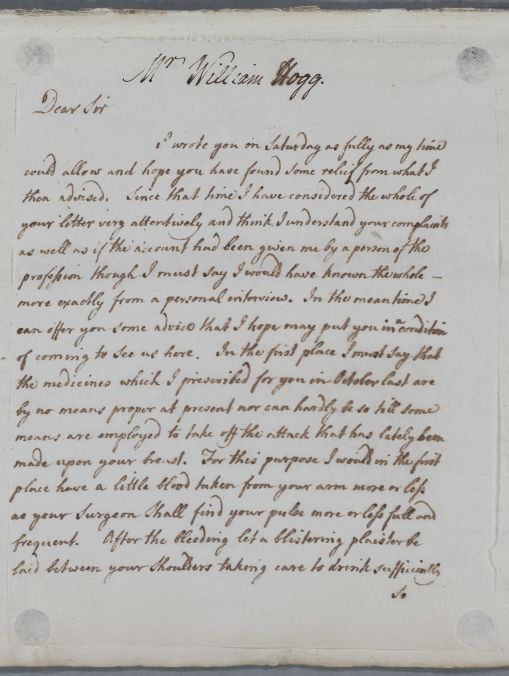 Mr William Hogg.
Dear Sir
I wrote you on Saturday as fully as my time
could allow and hope you have found some relief from what I
then advised. Since that time I have considered the whole of
your letter very attentively and think I understand your complaints
as well as if the account had been given me by a person of the
profession though I must say I would have known the whole –
more exactly from a personal interview. In the mean time I
can offer you some advice that I hope may put you in a condition
of coming to see us here. In the first place I must say that
the medicines which I prescribed for you in October last are
by no means proper at present nor can hardly be so till some
means are employed to take off the attack that has lately been
made upon your breast. For this purpose I would in the first
place have a little blood taken from your arm more or less
as your Surgeon shall find your pulse more or less full and
frequent. After the bleeding let a blistering plaister be
laid between your shoulders taking care to drink sufficiently
so